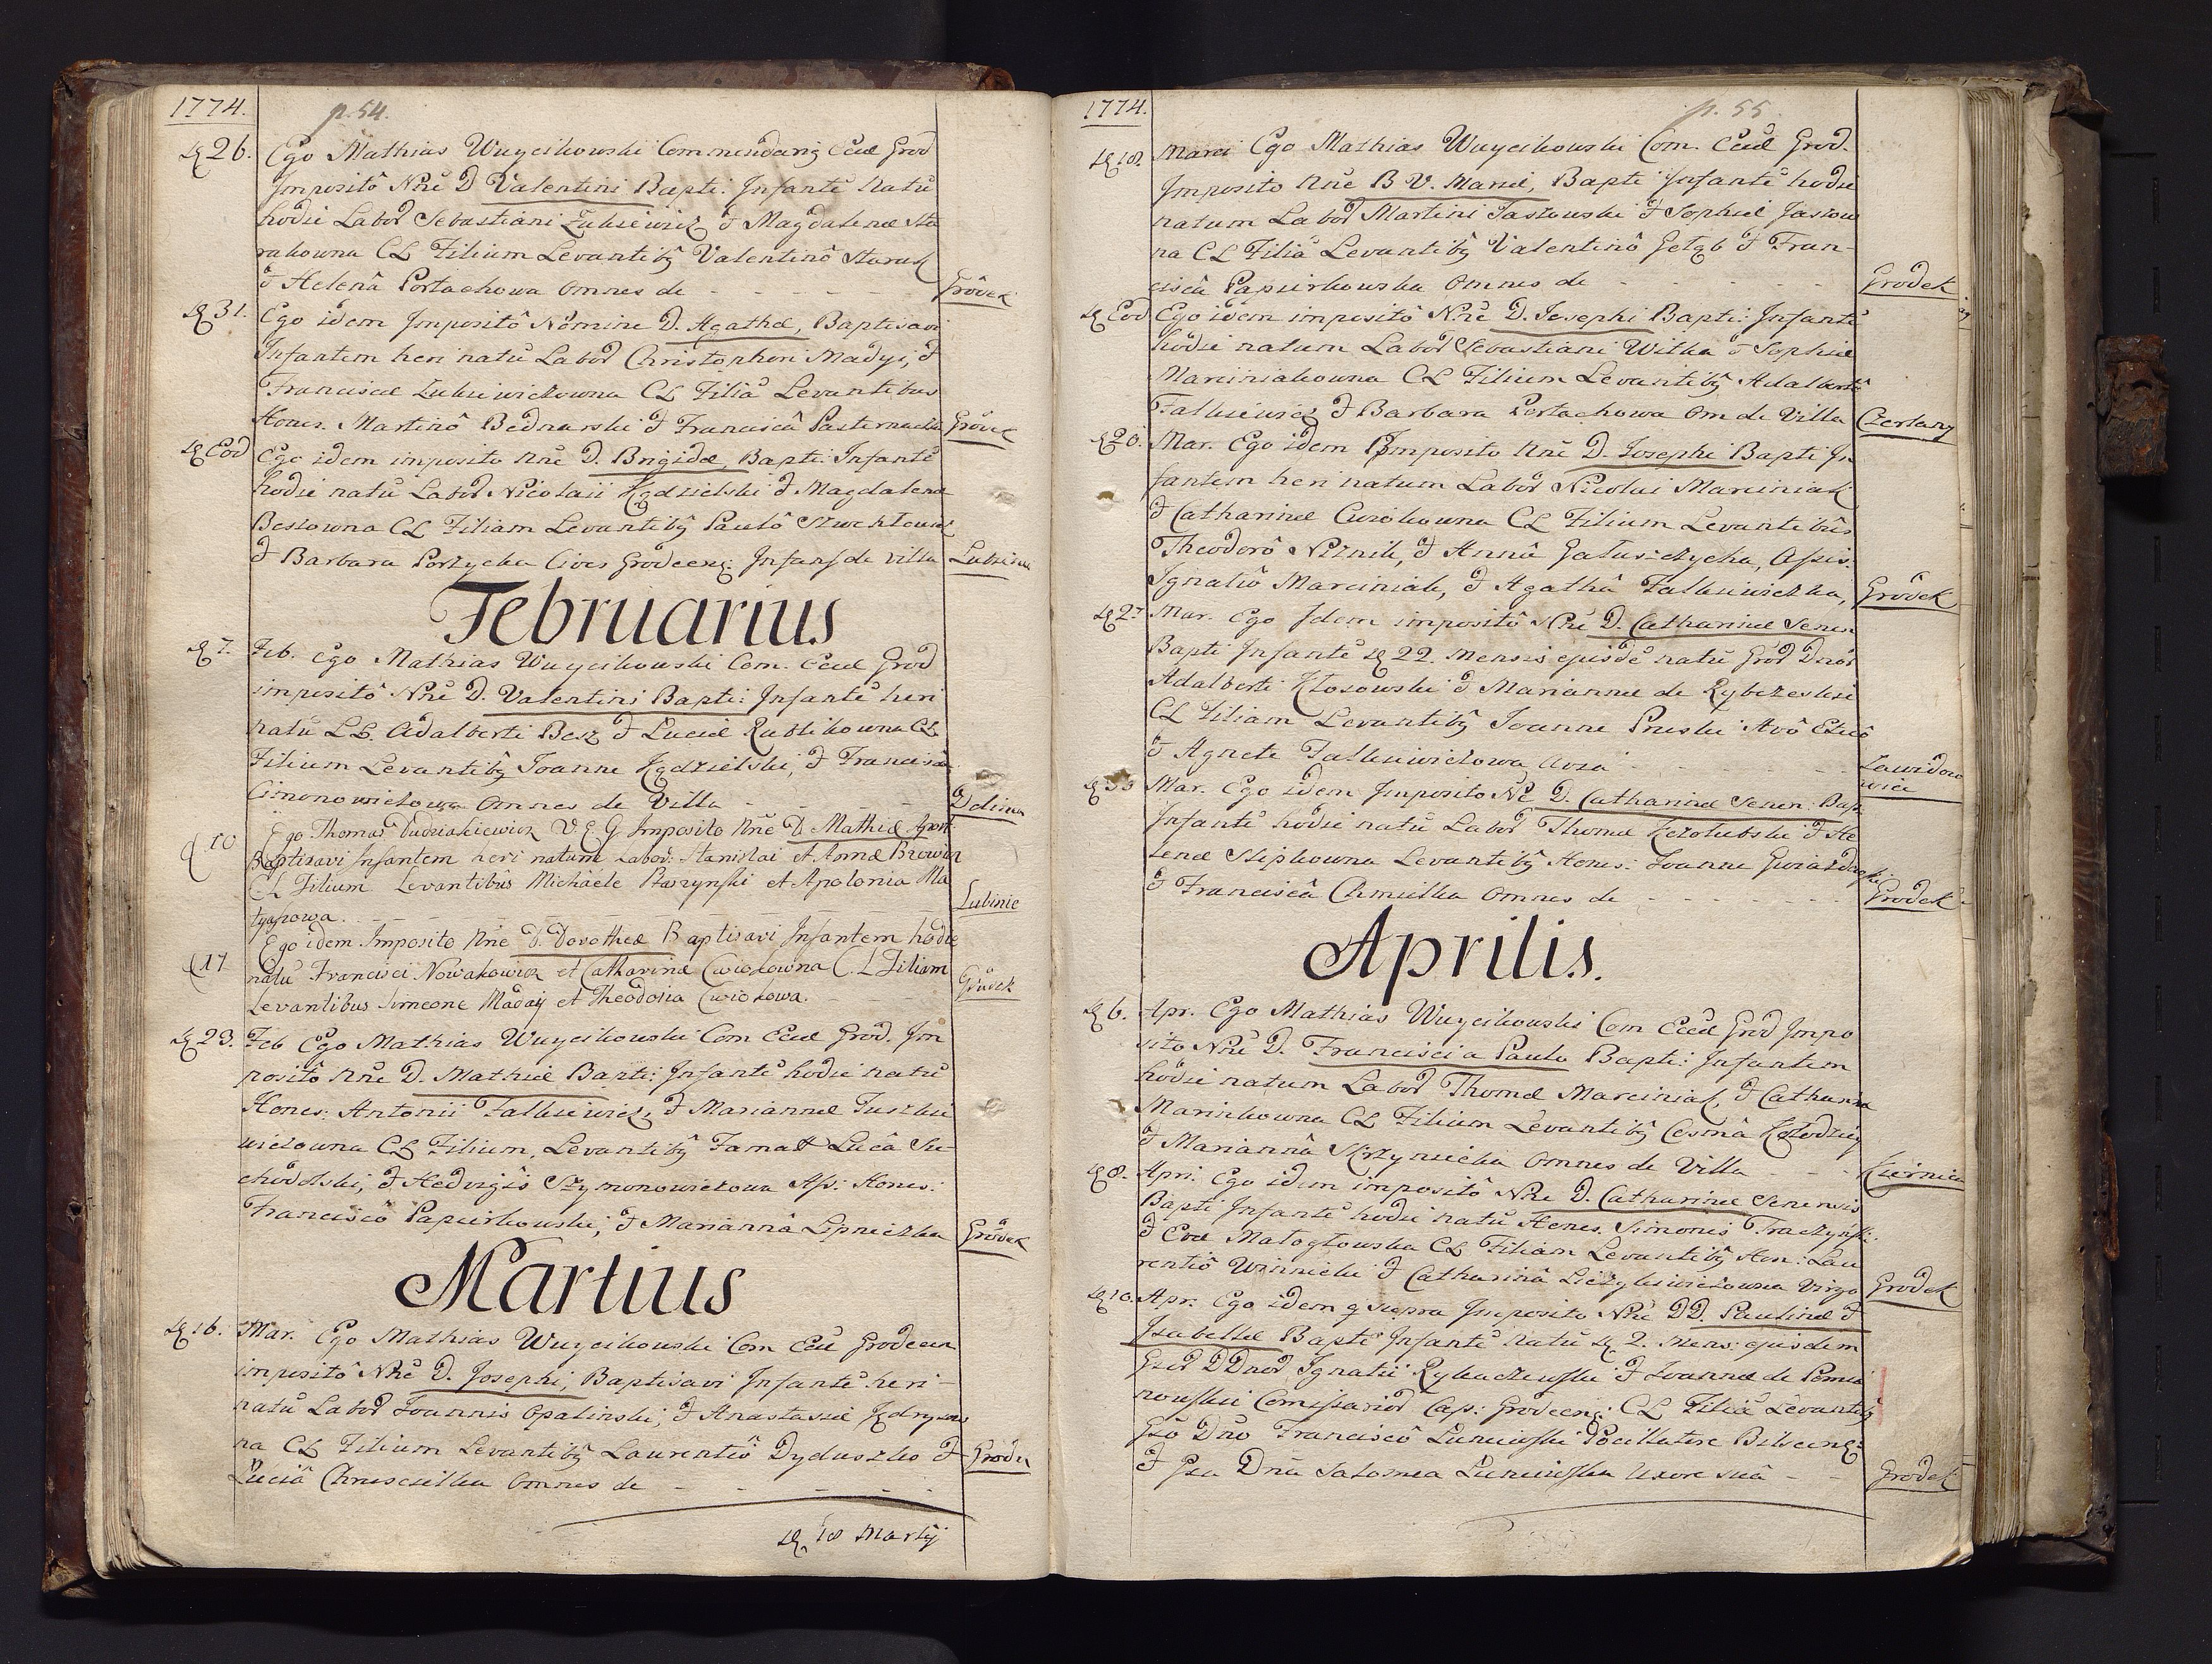 1774. p. 54.
26. Ego Mathias Wuycikowski Commendariy Eccl Grod
Impositô Nñe D Valentini Bapti: Infantē Natū
hodie Labor Sebastiani Zuksiewicz & Magdalenæ Sta
rakowna CL Filium Levantibȝ Valentinô Starak
& Helenâ Portachowa Omnes de - - - - - Grodek
31. Ego idem Impositô Nomine D. Agathæ, Baptisavi
Infantem heri natū Labor Christophori Madyi, &
Franciscæ Zuksiewiczowna CL Filiā Levantibus
Hones. Martinô Bednarski & Franciscâ Pasternacka Grodek
Eod Ego idem imposito Nñe D. Brigidæ, Bapti: Infantē
hodie natū Labor Nicolaii Kędzielski & Magdalenæ
Beszowna CL Filiam Levantibȝ Paulô
& Barbara Porzycka Cives Grodecen: Infans de villa
Februarius
7. Feb. Ego Mathias Wuycikowski Com. Eccl Grod
impositô Nñe D. Valentini Bapti: Infantē heri
natū LB. Adalberti Besz & Luciæ Rublikowna CL
Filium Levantibȝ Joanne Kędzielski, & Francisca
Cimonowiczowa Omnes de Villa - - - - Dolina
10 Ego Thomas Dudziakiewicz V. E. G Imposito Nñe D. Mathiæ Apost:
Baptizavi Infantem heri natum Labor: Stanislai et Annæ
CL Filium Levantibus Michaele et Apolonia Ma
tyasowa. - - - - - - Lubinie
17 Ego idem Imposito Nñe D. Dorotheæ Baptizavi Infantem hodie
natū Francisci Nowakowicz et Catharinæ Cwiokowna C. L Filiam
Levantibus Simeone Maday et Theodosia Cwiokowa. - - - Grodek
23. Feb Ego Mathias Wuycikowski Com Eccl Grod. Im
positô Nñe D. Mathiæ Bapti: Infantē hodie natū
Hones: Antonii Falkiewicz, & Mariannæ Juszkie
wiczowna CL Filium, Levantibȝ Famat Lucâ Su-
chodolski, & Hedvigis Szymonowiczowa As: Hones:
Franciscô Papierkowski, & Mariannâ Lipniczka Grodek
Martius
16. Mar. Ego Mathias Wuycikowski Com Eccl Grodecen
impositô Nñe D. Josephi, Baptisavi Infantē heri-
natū Labor Joannis Opalinski, & Anastasiæ Jędryszow
na CL Filium Levantibȝ Laurentiô Dyduszko &
Luciâ Chruscielka Omnes de - - - - - Grodek
18 Martij
1774. p. 55
18. Marci Ego Mathias Wuycikowski Com. Eccl Grod.
Imposito Nñe B V. Mariæ, Bapti Infantē hodie
natum Labor Martini Jastowski & Sophiæ Jastow
na CL Filiā Levantibȝ Valentinô & Fran-
ciscâ Papierkowska Omnes de - - - - - Grodek
Eod Ego idem impositô Nñe D. Josephi Bapti: Infantē
hodie natum Labor Sebastiani Witka & Sophiæ
Marciniakowna CL Filium Levantibȝ Adalbertô
Falkiewicz & Barbara Portachowa Om de Villa Czerlany
20. Mar. Ego idem Imposito Nñe D. Josephi Bapti In
fantem heri natum Labor Nicolai Marciniak
& Catharinæ Cwiokowna CL Filium Levantibus
Theodorô Niznik, & Annâ Gałuszczycka, Assis.
Ignatiô Marciniak, & Agathâ Falkiewiczka, Grodek
Mar. Ego Idem impositô Nñe D. Catharinæ Senen
Bapti Infantē 22. Mensis ejusdē natū Gror Dnor
Adalberti Kłosowski & Mariannæ de Rybczeskie
CL Filiam Levantibȝ Joanne Pruski Avô
& Agnete Falkiewiczowa Avia - - - - Zawidow
wice
Mar. Ego idem Imposito Nñe D. Catharinæ Senen: Bap
Infantē hodie natū Labor Thomæ Kozolubski & He
lenæ Stepkowna Levantibȝ Hones: Joanne Gwiazdowski
& Franciscâ Chmielka Omnes de - - - - - Grodek
Aprilis.
6. Apr. Ego Mathias Wuycikowski Com Eccl Grod Impo
sito Nñe D. Francisci a Paulo Bapti: Infantem
hodie natum Labor Thomæ Marciniak, & Catharinæ
Marinkowna CL Filium Levantibȝ Cosmâ Kołodziey
& Mariannâ Skrzynicka Omnes de Villa - - - Kiernica
8. Apri. Ego idem impositô Nñe D. Catharinæ Senensis
Bapti Infantē hodie natū Hones. Simonis Traczynski
& Evæ Małogłowska CL Filiam Levantibȝ Hon: Lau
rentiô Winnicki & Catharinâ Virgo Grodek
10. Apr. Ego idem q supra Imposito Nñe DD. Paulinæ &
Isabellæ Bapti Infantē Natū 2. Mens: ejusdem
Gror DDnor Ignatii Rybaczewski & Joannæ de Pomia
nowskie Comissarior Cap: Grodecen: CL Filiā Levantibȝ
Gsô Dño Franciscô Luniewski Pocillatore Bilscen:
& Gsa Dña Salomea Luniewska Uxore suâ - - Grodek